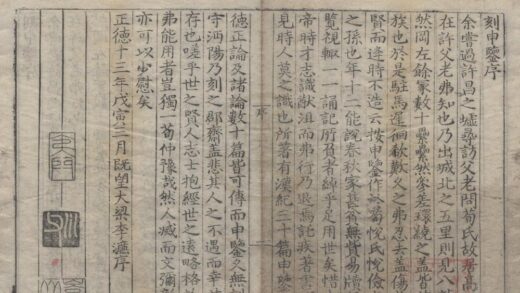 刻申鑒序
余嘗過許昌之墟尋訪父老問荀氏故居高
在許父老弗知也乃出城北之五里則見八
然岡左餘冢數十纍纍然峯差環繞之蓋皆
族也於是駐馬遲徊歎久之弗忍去蓋傷
賢而逢時不造云按申鑒作於荀悅氏悅儉
之孫也年十二能說春秋家貧無書易牘
覽視輒一誦記所著者綽乎足用世矣惜
帝時才志識猷沮而弗行乃退焉託疾
見時人莫之識也所著有漢紀三十篇申鑒
序
德正論及諸論數十篇皆可傳而申鑒久無
守沔陽乃刻之郡齋蓋悲其人之不遇而幸
存也嗟乎世之賢人志士抱經世之遠略
弗能用者豈獨一荀仲豫哉然人臧而文彌
亦可以少慰矣
正德十三年戊寅三月既望大梁李濂序